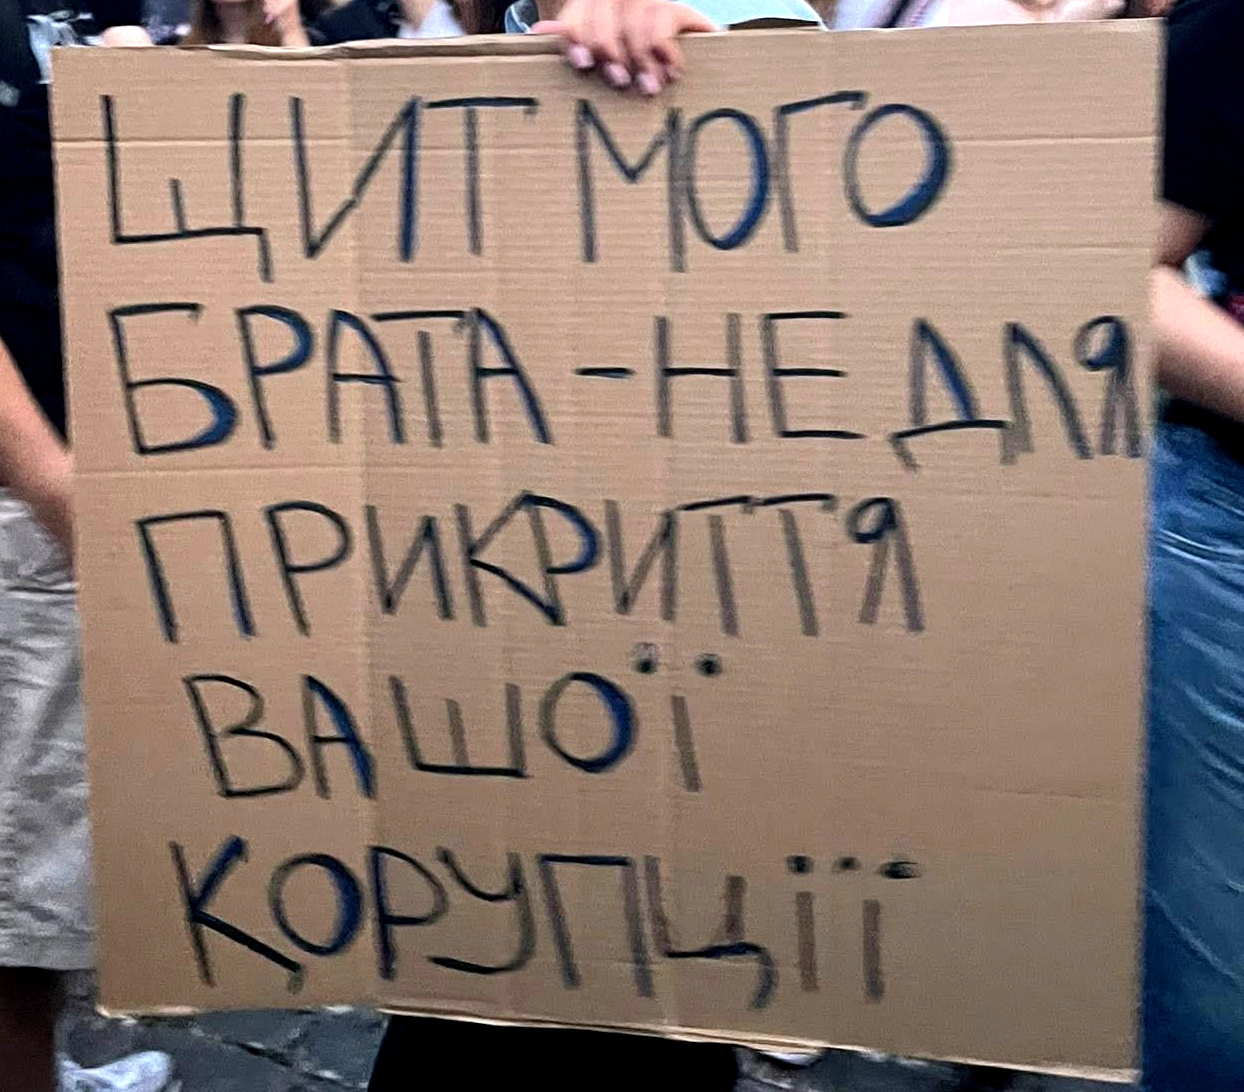 ЩИТ МОГО
БРАТА - НЕ ДЛЯ
ПРИКРИТТЯ
ВАШОЇ
КОРУПЦІЇ